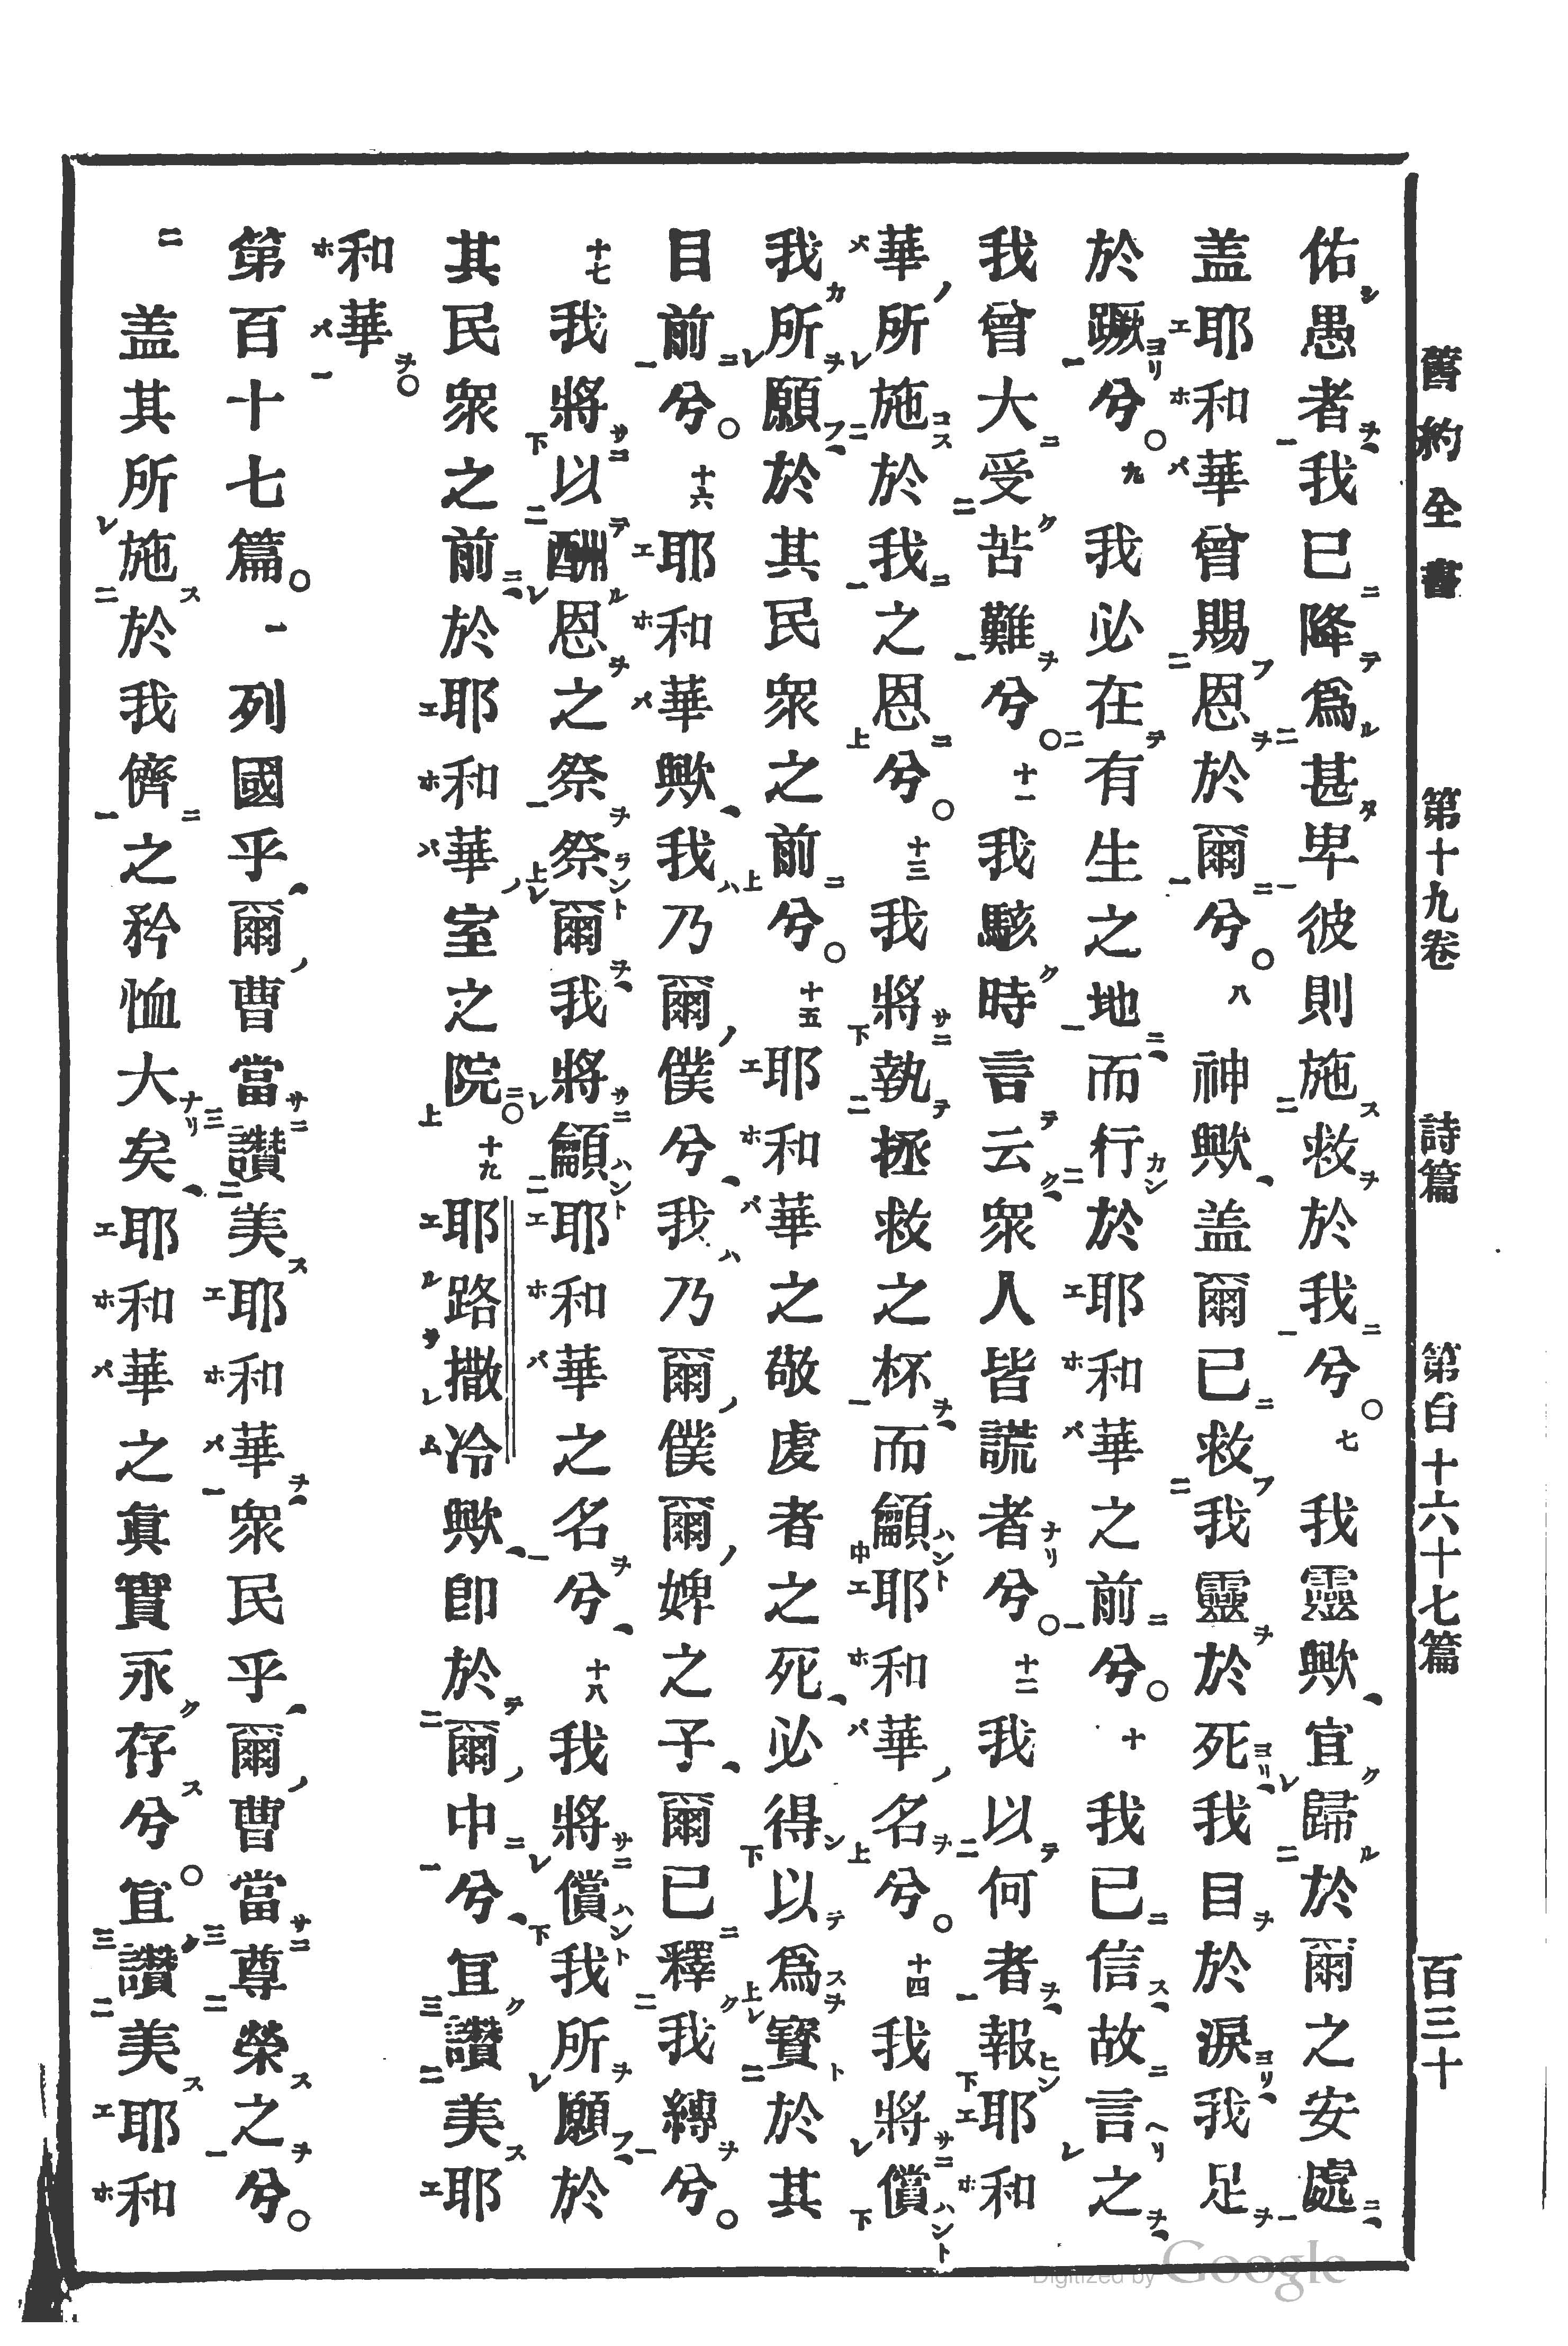 舊約全書 第十九卷 詩篇 第百十六十七篇 百三十
佑愚者我已降爲甚卑彼則施救於我兮○七我靈歟、宜歸於爾之安處、
盖耶和華曾賜恩於爾兮○八神歟、盖爾已救我靈於死、我目於淚、我足
於蹶兮○九我必在有生之地、而行於耶和華之前兮○十我已信、故言之、
我曾大受苦難兮○十一我駭時言云、衆人皆謊者兮○十二我以何者、報耶和
華所施於我之恩兮○十三我將執拯救之杯、而龥耶和華名兮○十四我將償
我所願、於其民衆之前兮○十五耶和華之敬虔者之死、必得以爲寶於其
目前兮○十六耶和華歟、我乃爾僕兮、我乃爾僕爾婢之子、爾已釋我縛兮○
十七我將以酬恩之祭祭爾、我將龥耶和華之名兮、十八我將償我所願、於
其民衆之前、於耶和華室之院○十九耶路撒冷歟、卽於爾中兮、宜讃美耶
和華○
第百十七篇○一列國乎、爾曹當讃美耶和華、衆民乎、爾曹當尊榮之兮○
二盖其所施於我儕之矜恤大矣、耶和華之眞實永存兮○宜讃美耶和
Digitized by Google